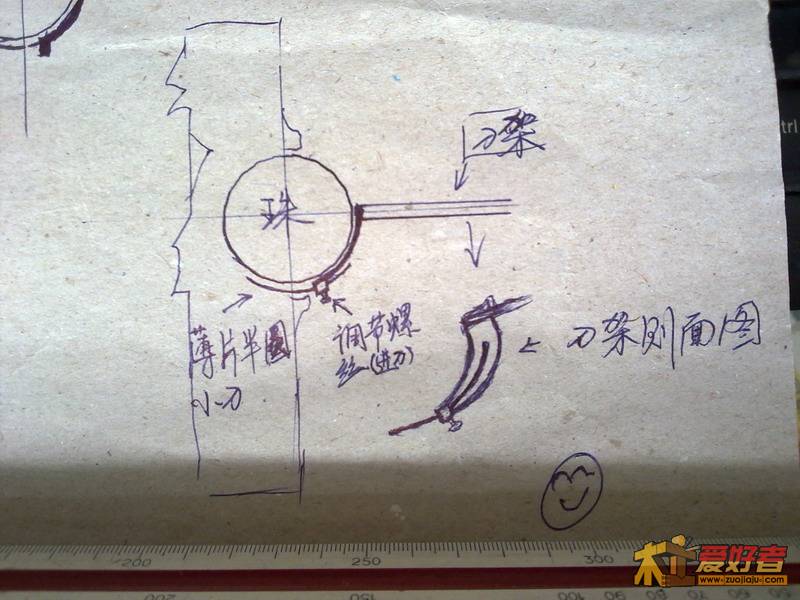 刀架
珠
薄片半圆
小刀
调节螺
丝(进刀)
刀架则面图
200
250
300
trl
木工爱好者
www.zuojiaju.com